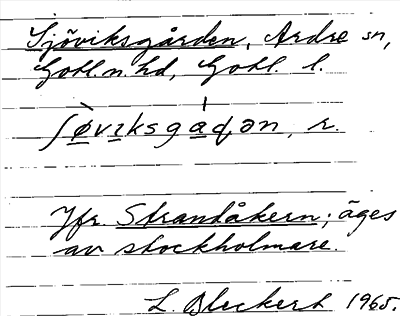 Sjöviksgården, Ardre sn,
Gotl. n. hd, Gotl. l.
ʃø̀vɪksgaɖən, r.
Jfr. Strandåkern; äges
av stockholmare.
L. Bleckert 1965.